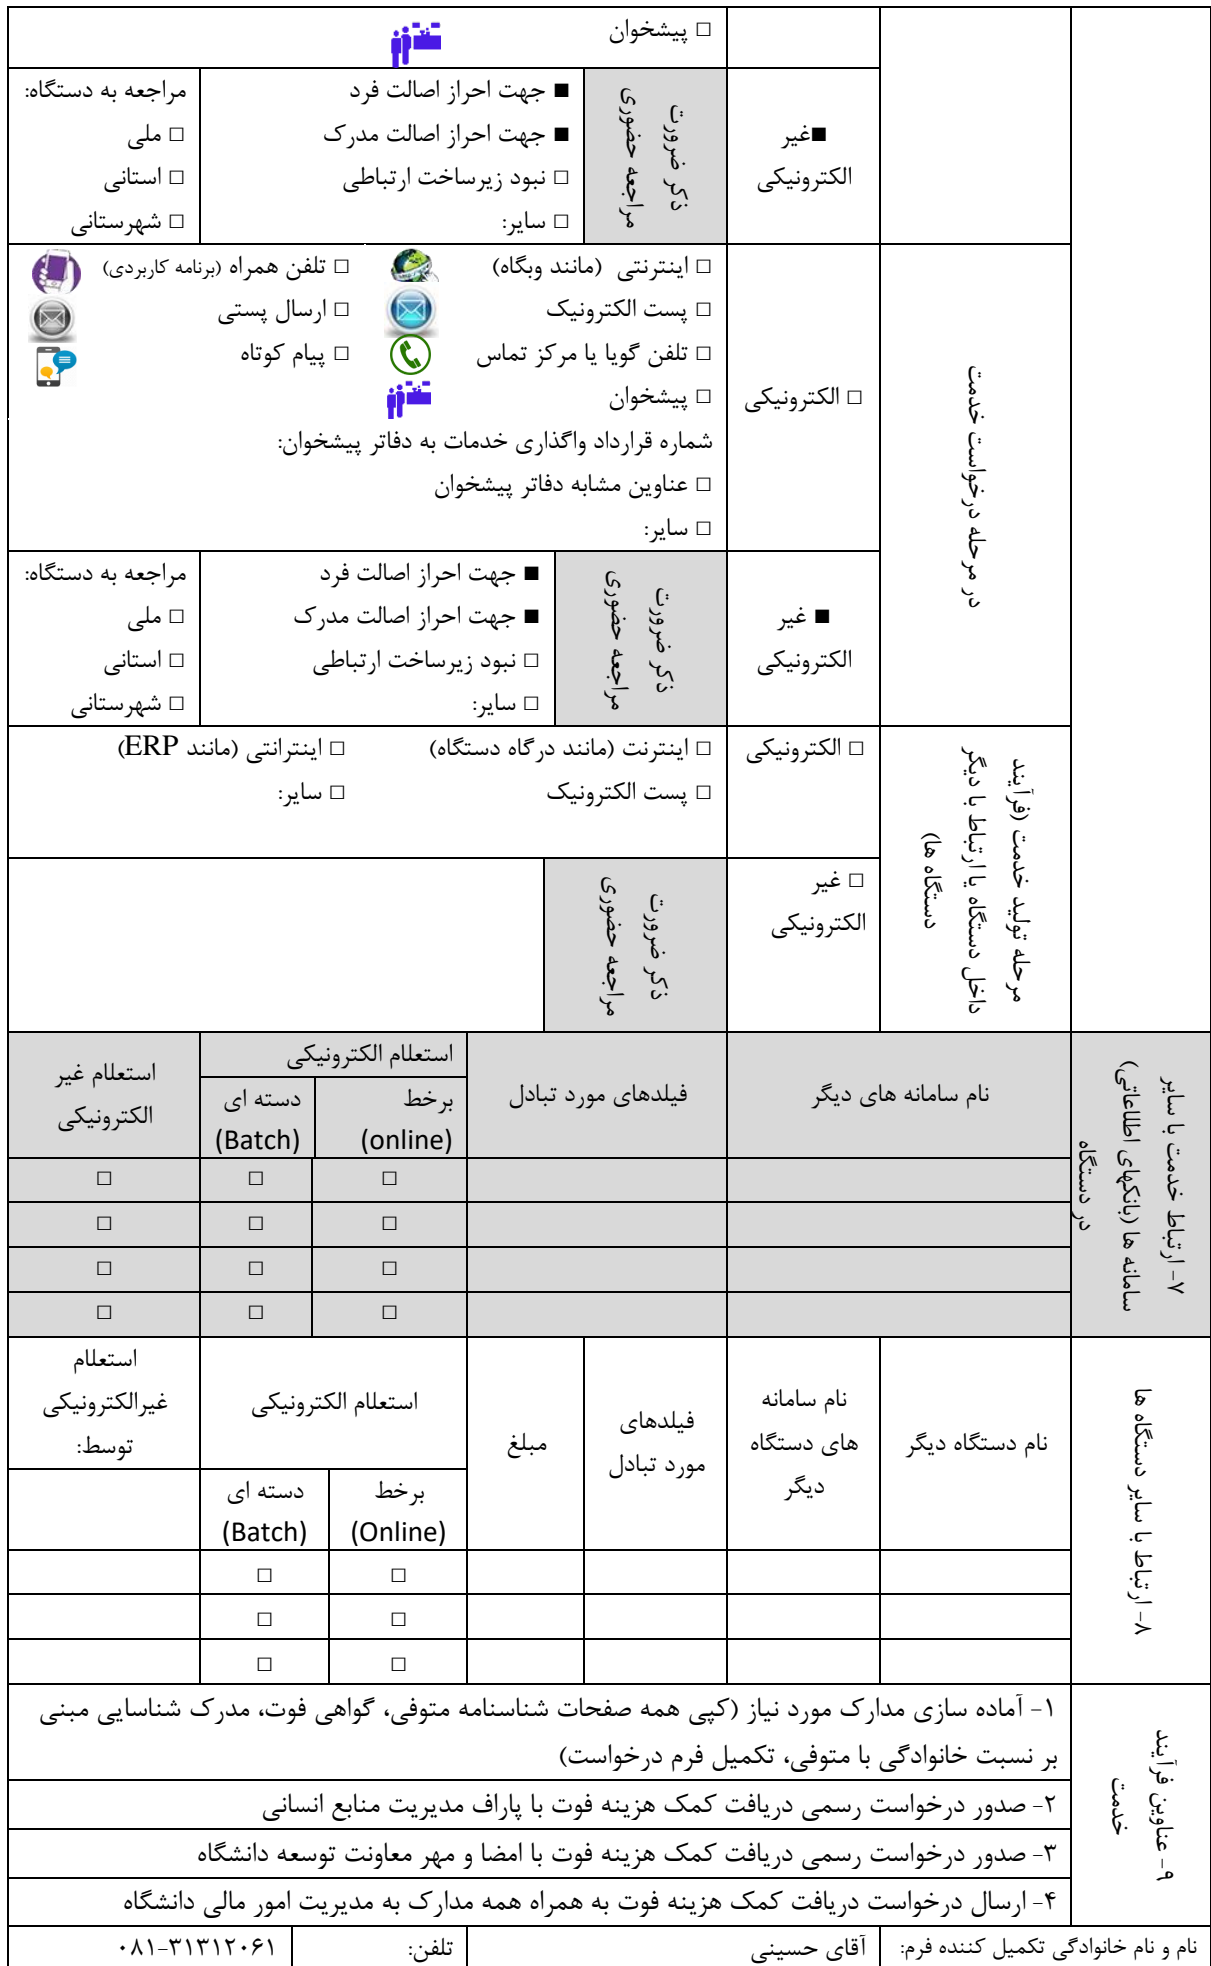 □ پیشخوان
■غیر
الکترونیکی
ذکر ضرورت
مراجعه حضوری
■ جهت احراز اصالت فرد
■ جهت احراز اصالت مدرک
□ نبود زیرساخت ارتباطی
□ سایر:
مراجعه به دستگاه:
□ ملی
□ استانی
□ شهرستانی
در مرحله درخواست خدمت
□ الکترونیکی
□ اینترنتی (مانند وبگاه) □ تلفن همراه (برنامه کاربردی)
□ پست الکترونیک □ ارسال پستی
□ تلفن گویا یا مرکز تماس □ پیام کوتاه
□ پیشخوان
شماره قرارداد واگذاری خدمات به دفاتر پیشخوان:
□ عناوین مشابه دفاتر پیشخوان
□ سایر:
■ غیر
الکترونیکی
ذکر ضرورت
مراجعه حضوری
■ جهت احراز اصالت فرد
■ جهت احراز اصالت مدرک
□ نبود زیرساخت ارتباطی
□ سایر:
مراجعه به دستگاه:
□ ملی
□ استانی
□ شهرستانی
مرحله تولید خدمت (فرآیند
داخل دستگاه یا ارتباط با دیگر
دستگاه ها)
□ الکترونیکی
□ اینترنت (مانند درگاه دستگاه) □ اینترانتی (مانند ERP)
□ پست الکترونیک □ سایر:
□ غیر
الکترونیکی
ذکر ضرورت
مراجعه حضوری
۷- ارتباط خدمت با سایر
سامانه ها (بانکهای اطلاعاتی)
در دستگاه
نام سامانه های دیگر
فیلدهای مورد تبادل
استعلام الکترونیکی
برخط
(online)
دسته ای
(Batch)
استعلام غیر
الکترونیکی
□ □ □
□ □ □
□ □ □
□ □ □
۸- ارتباط با سایر دستگاه ها
نام دستگاه دیگر
نام سامانه
های دستگاه
دیگر
فیلدهای
مورد تبادل
مبلغ
استعلام الکترونیکی
برخط
(Online)
دسته ای
(Batch)
استعلام
غیرالکترونیکی
توسط:
□ □
□ □
□ □
۹- عناوین فرآیند
خدمت
۱- آماده سازی مدارک مورد نیاز (کپی همه صفحات شناسنامه متوفی، گواهی فوت، مدرک شناسایی مبنی
بر نسبت خانوادگی با متوفی، تکمیل فرم درخواست)
۲- صدور درخواست رسمی دریافت کمک هزینه فوت با پاراف مدیریت منابع انسانی
۳- صدور درخواست رسمی دریافت کمک هزینه فوت با امضا و مهر معاونت توسعه دانشگاه
۴- ارسال درخواست دریافت کمک هزینه فوت به همراه همه مدارک به مدیریت امور مالی دانشگاه
نام و نام خانوادگی تکمیل کننده فرم: آقای حسینی تلفن: ۰۸۱-۳۱۳۱۲۰۶۱